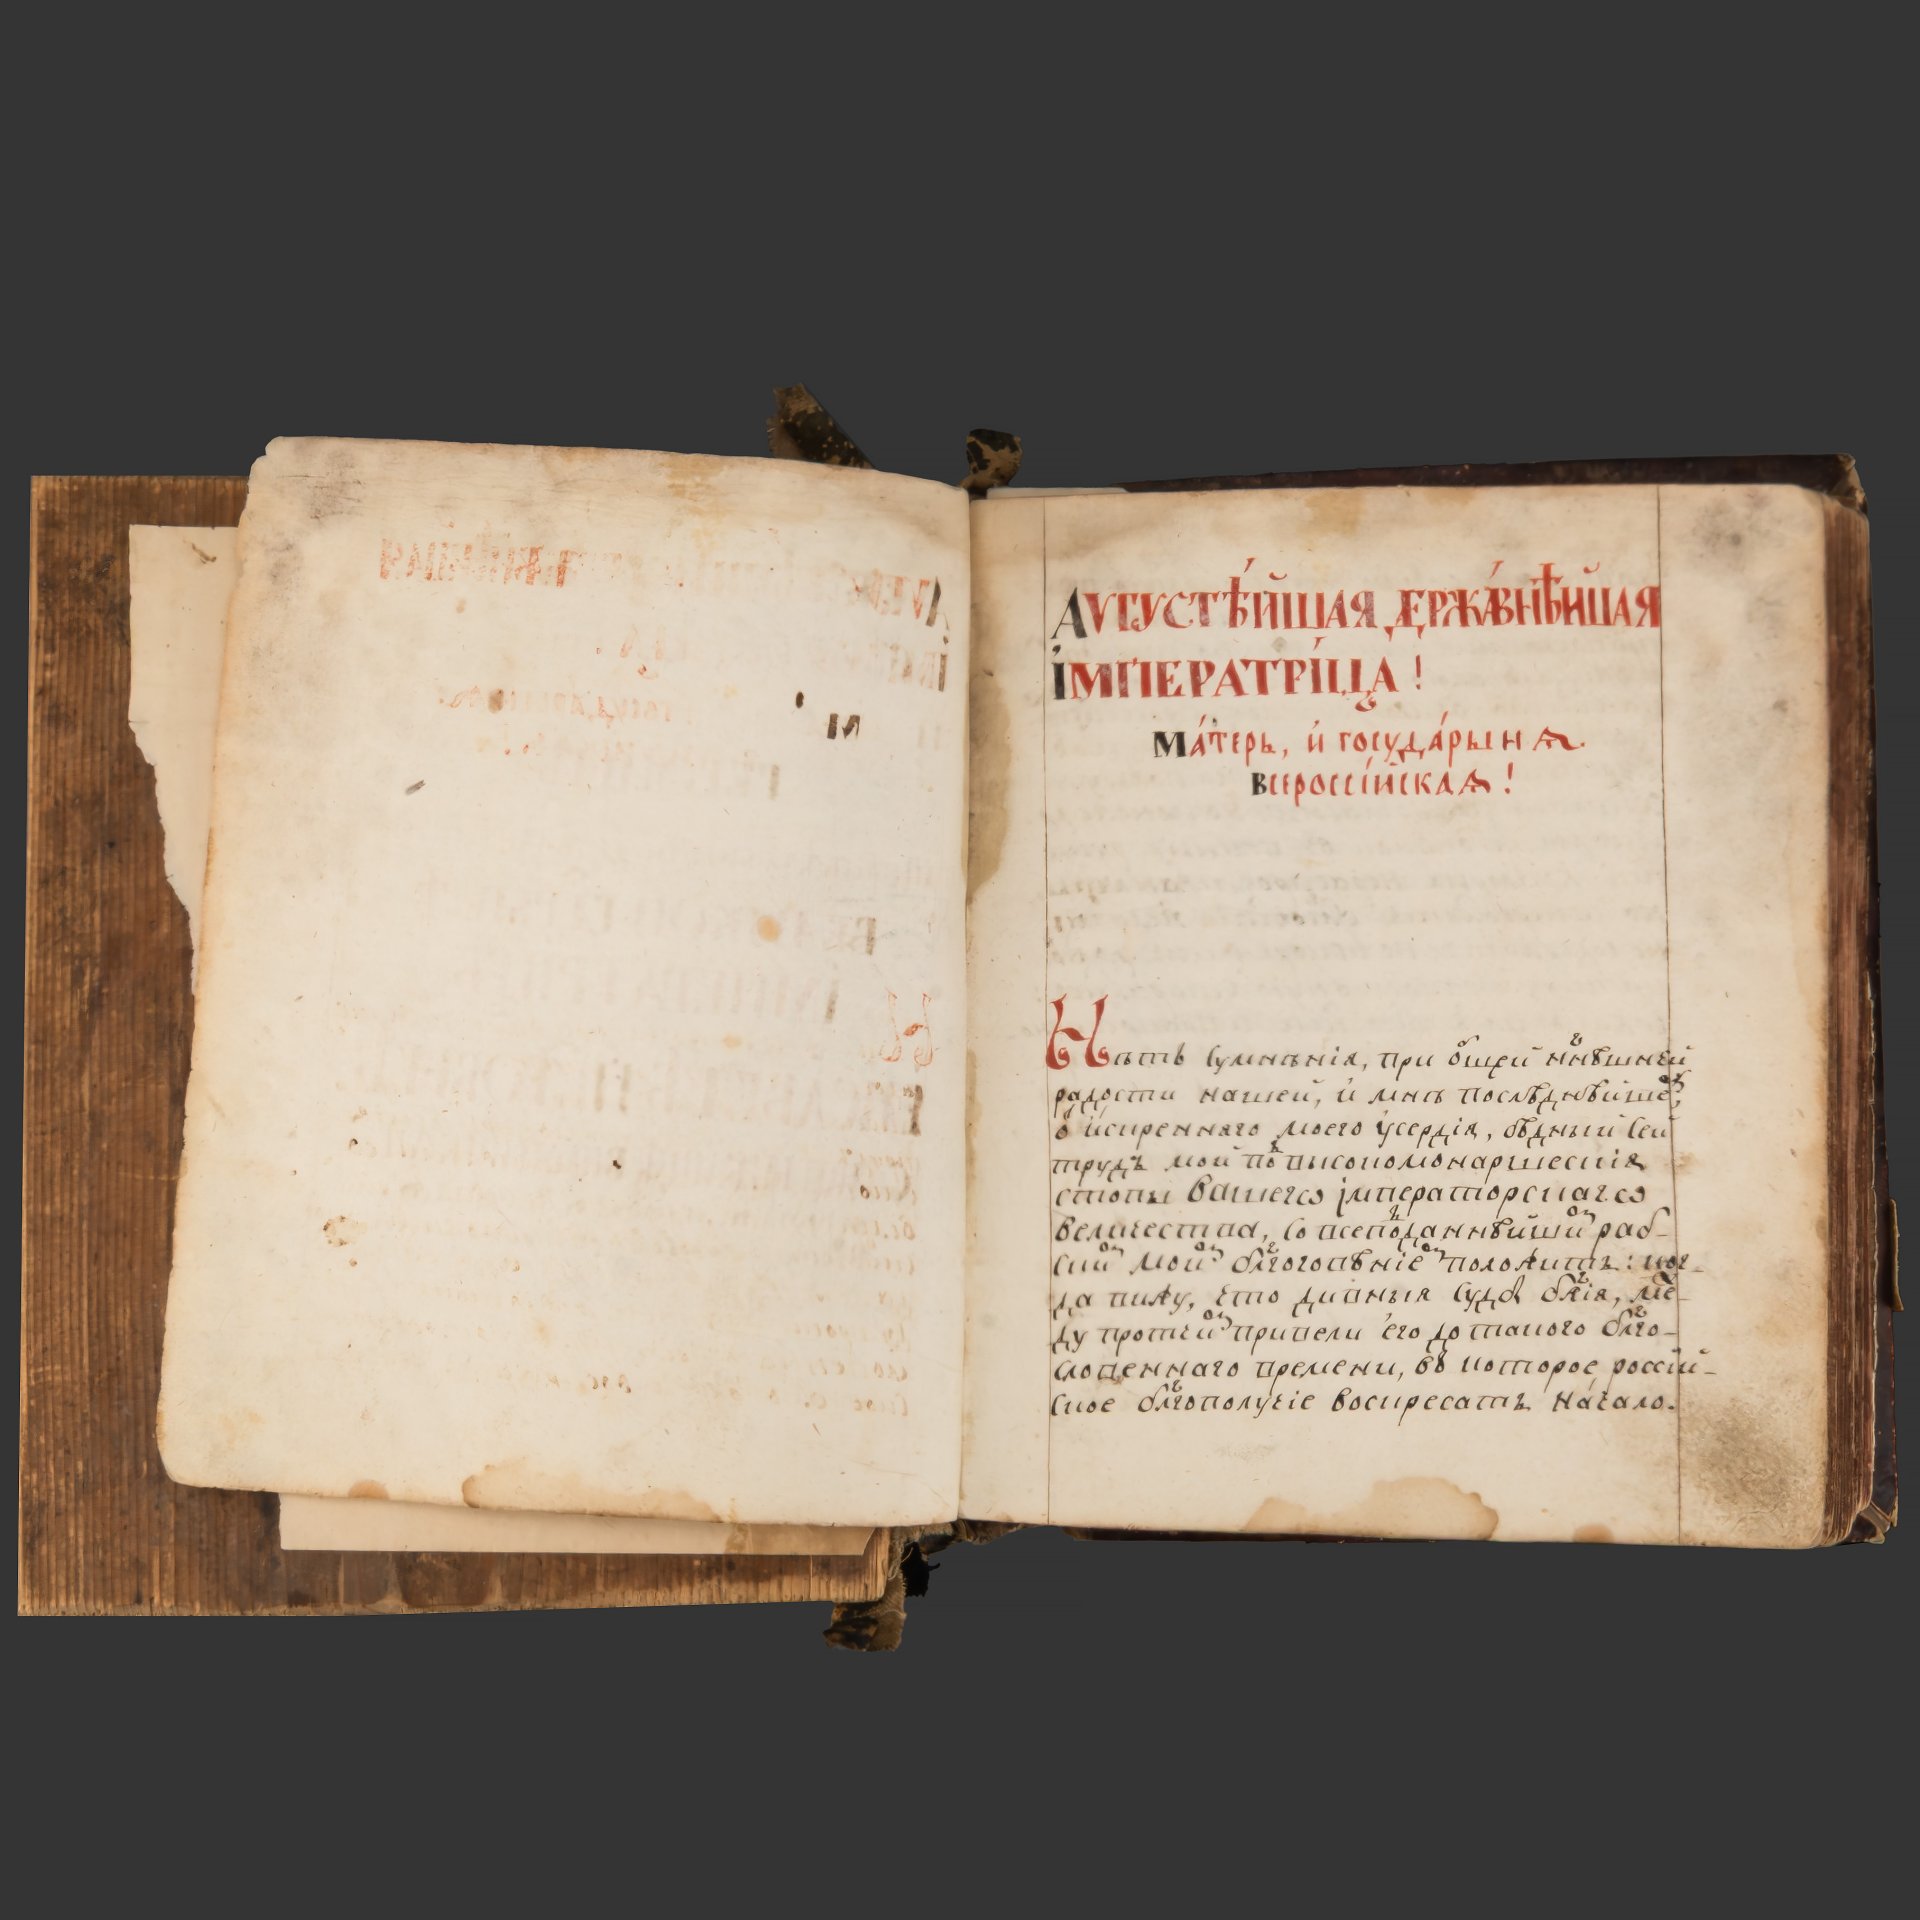 АѴГУСТѢ́ЙШАЯ ДЕРЖА́ВНѢЙШАЯ
І́МПЕРАТРІ́ЦА!
Ма́терь, и҆ госуда́рынѧ
всероссі́йскаѧ!
Нѣтъ сумнѣнія, при о҆бщей нн҃ѣшней
радости нашей, и҆ мнѣ послѣднѣйше,
о҆ и҆скреннаго моего у҆сердія, бѣдный сей
трудъ мой по высокомонаршескія
стопы вашегѡ імператорскагѡ
величества, со всеподаннѣйши раб-
ски мои бл҃гоговѣніе положить: ког-
да вижу, что дивныя судбы бж҃ія, ме-
ду протчи привели е҆го до такого бл҃го-
словеннаго времени, въ которое россій-
ское бл҃гополучіе воскресать на́чало.